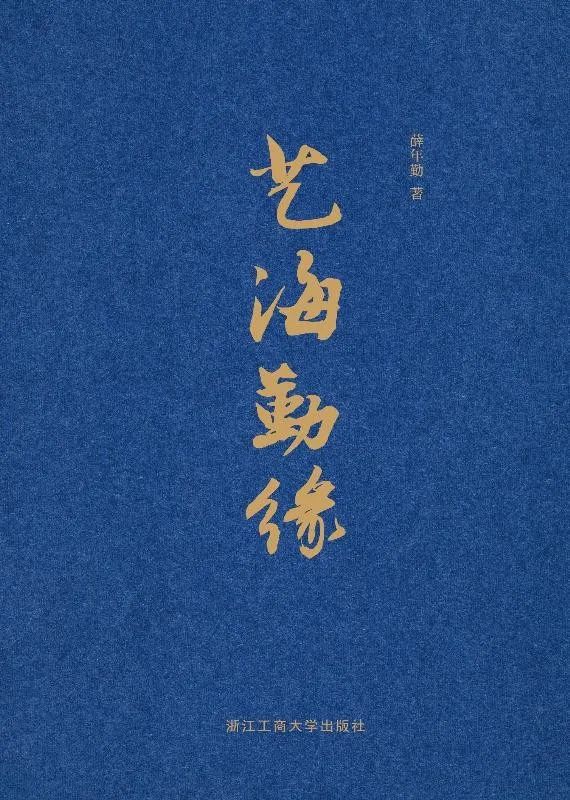 薛年勤 著
艺海勤缘
浙江工商大学出版社